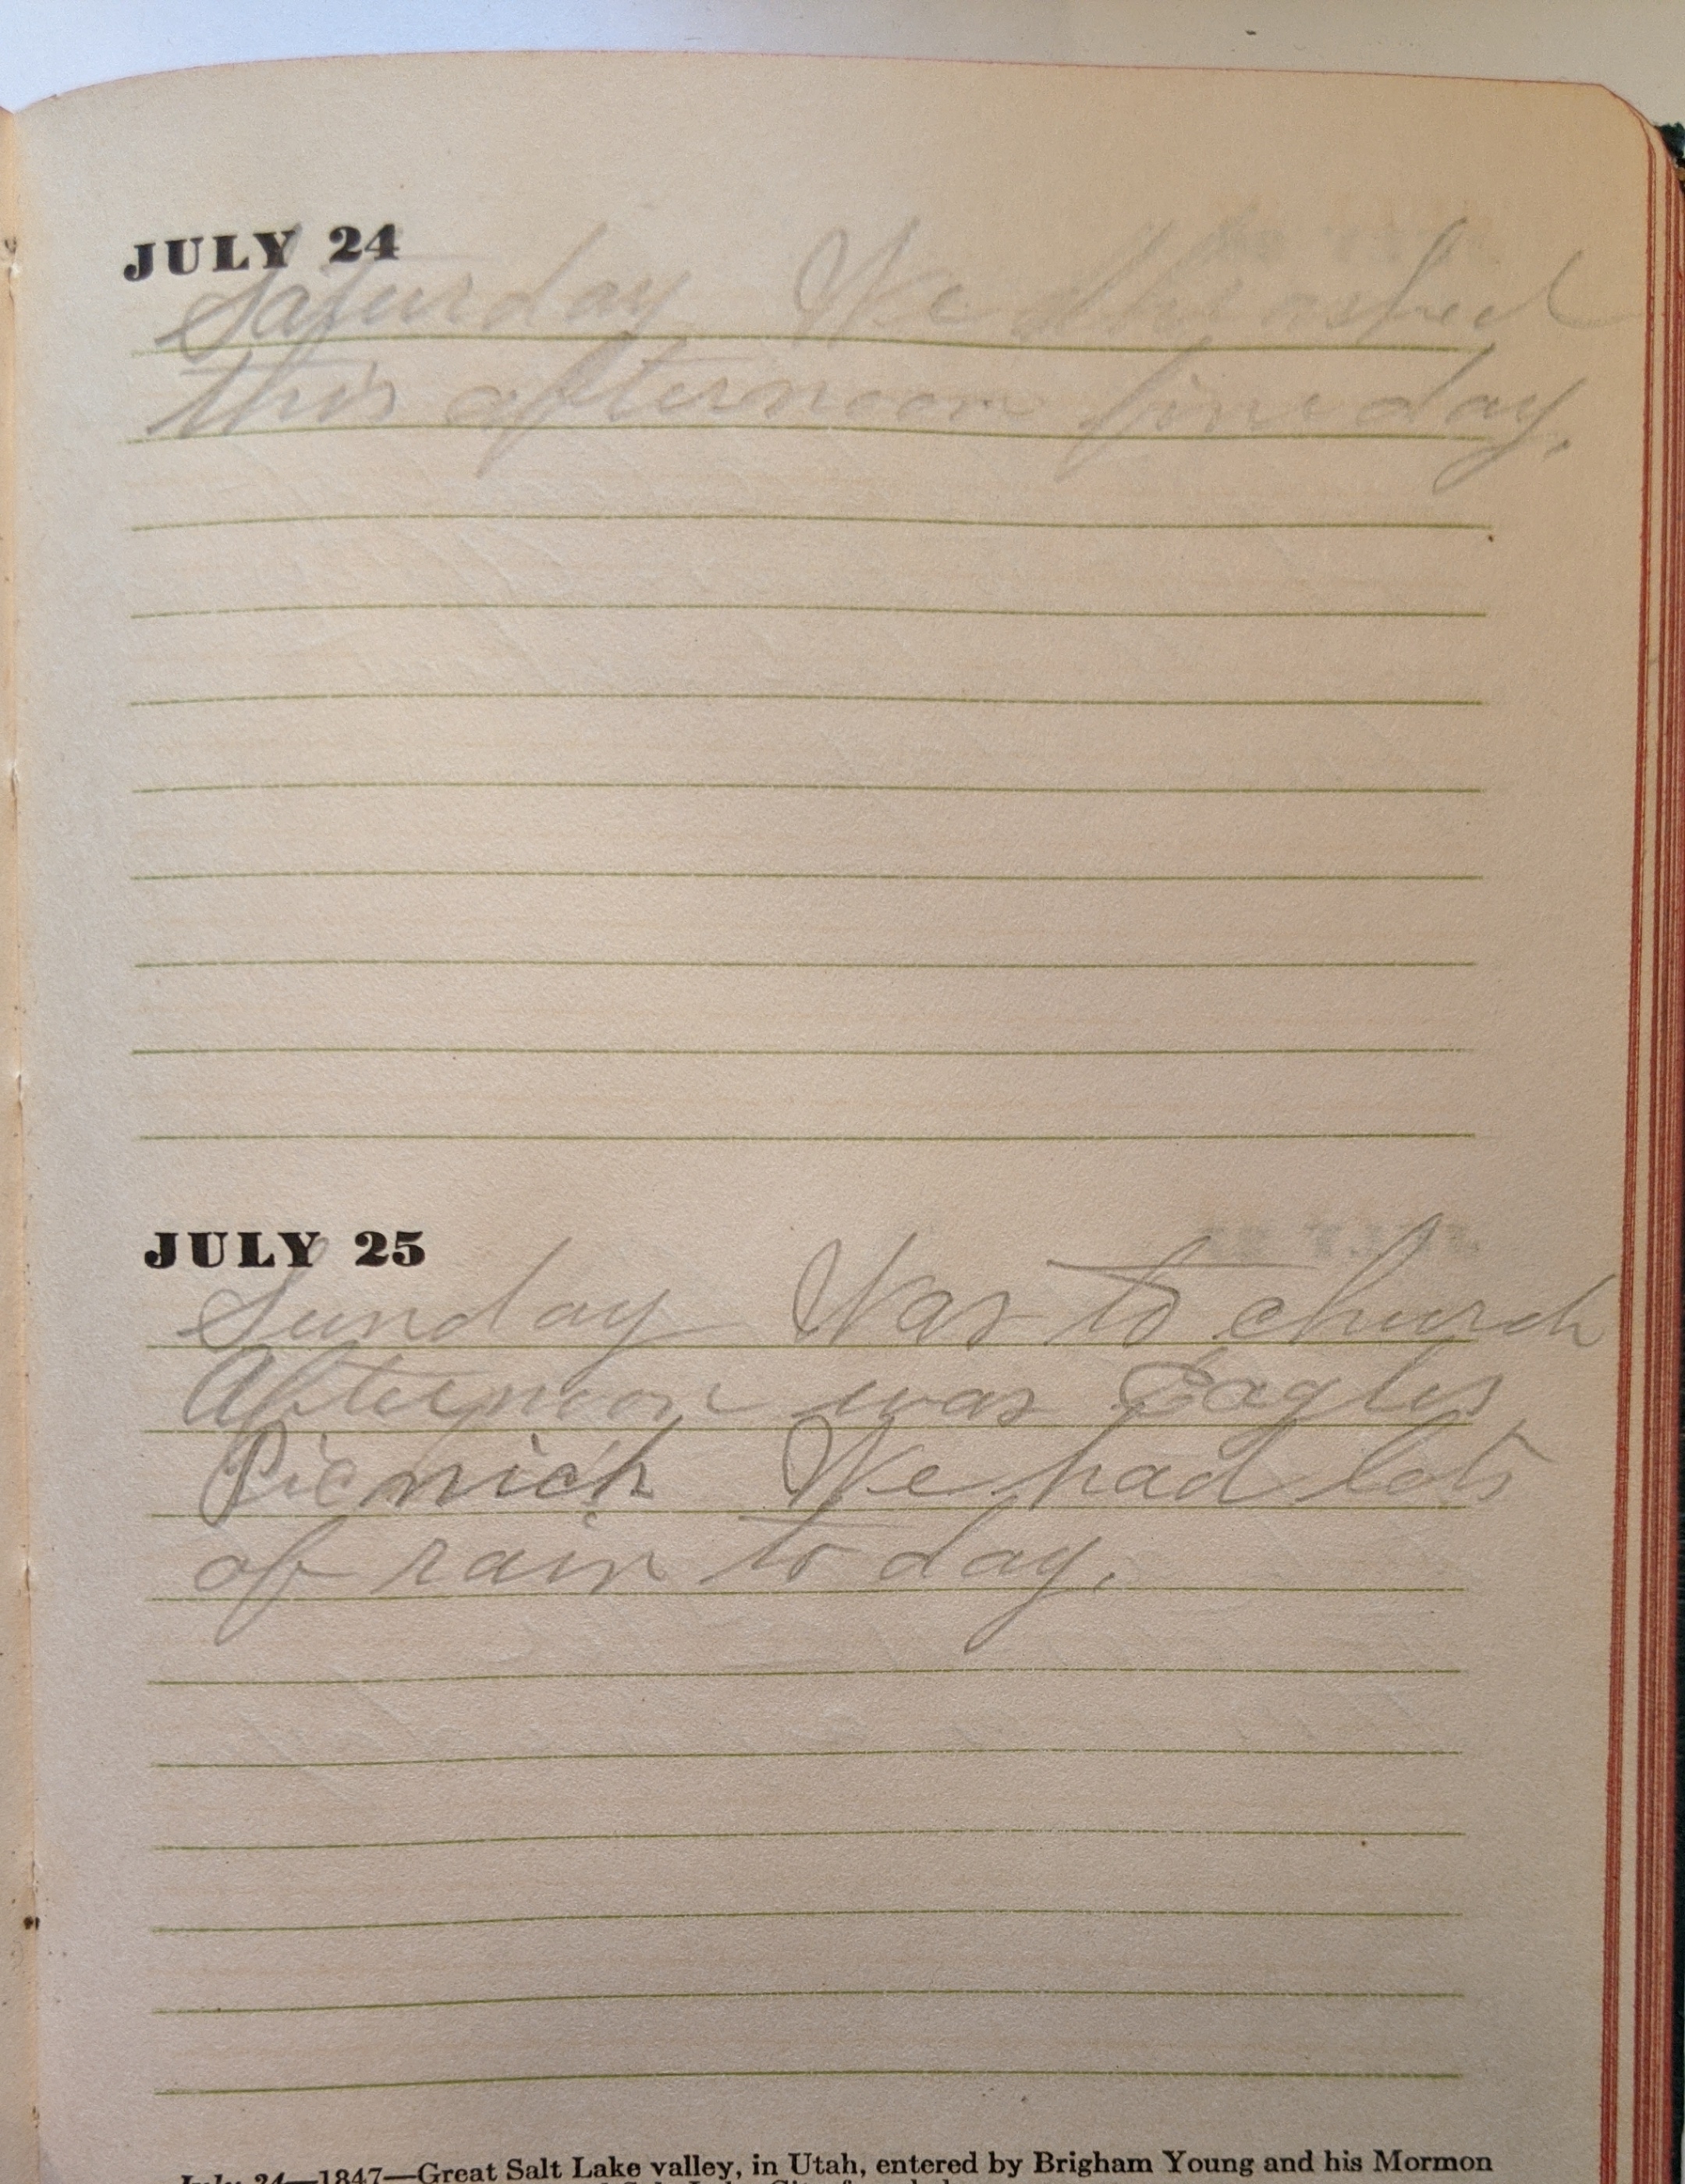 JULY 24
Saturday We thrashed
this afternoon fine day.
JULY 25
Sunday Was to church
Afternoon was Eagles
Picnich We had lots
of rain to day.
July 24—1847—Great Salt Lake valley, in Utah, entered by Brigham Young and his Mormon